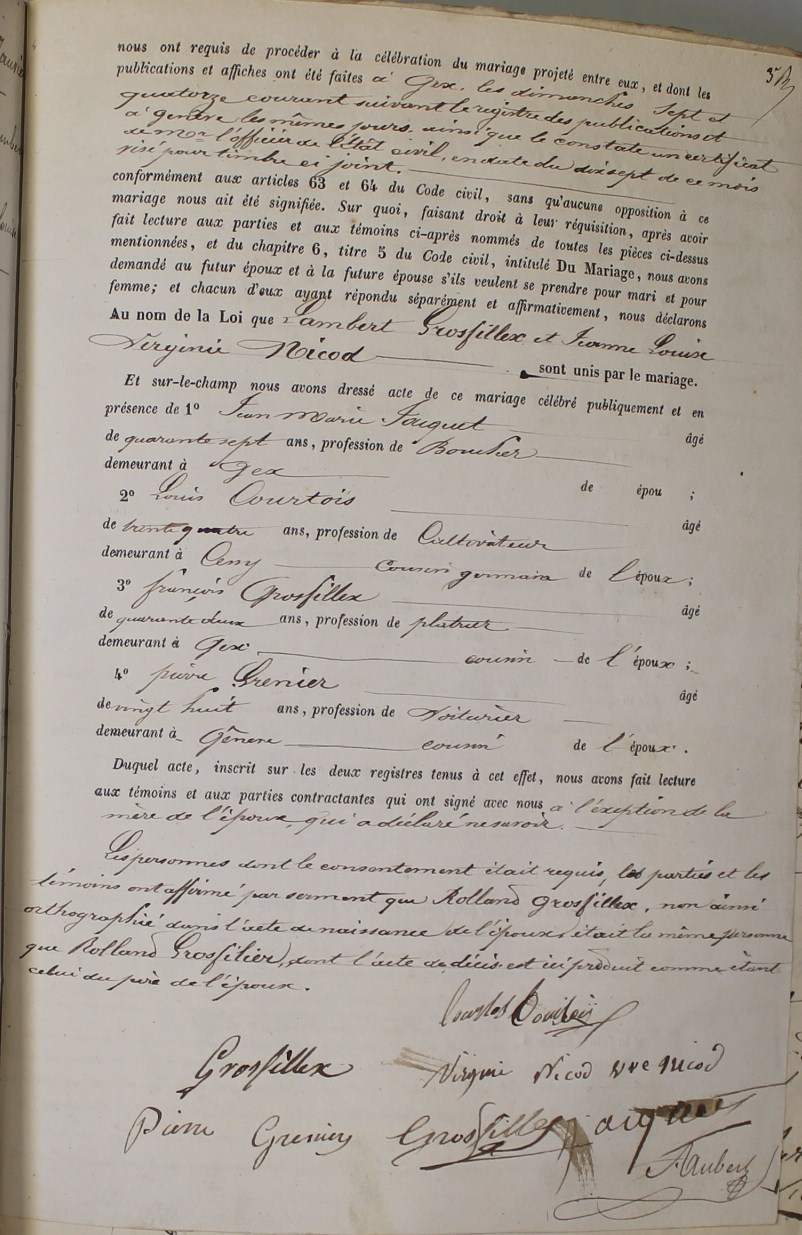 nous ont requis de procéder à la célébration du mariage projeté entre eux, et dont les
publications et affiches ont été faites à Gex, les dimanches sept et
quatorze courant suivant le registre des publications et
à genève les mêmes jours, ainsi que le constate un certificat
de Mr l'officier de l'État civil, en date du dixsept de ce mois
visé pour timbre ci joint.
conformément aux articles 63 et 64 du Code civil, sans qu'aucune opposition à ce
mariage nous ait été signifiée. Sur quoi, faisant droit à leur réquisition, après avoir
fait lecture aux parties et aux témoins ci-après nommés de toutes les pièces ci-dessus
mentionnées, et du chapitre 6, titre 5 du Code civil, intitulé Du Mariage, nous avons
demandé au futur époux et à la future épouse s'ils veulent se prendre pour mari et pour
femme; et chacun d'eux ayant répondu séparément et affirmativement, nous déclarons
Au nom de la Loi que Lambert Grosfillex et Jeanne Louise
Virginie Nicod sont unis par le mariage.
Et sur-le-champ nous avons dressé acte de ce mariage célébré publiquement et en
présence de 1º Jean Marie Jaquet âgé
de quarante sept ans, profession de Boucher
demeurant à Gex de épou ;
2º Louis Courtois âgé
de trente quatre ans, profession de Cultivateur
demeurant à Cessy cousin germain de l'époux;
3º françois Grosfillex âgé
de quarante deux ans, profession de platrier
demeurant à Gex cousin de l'époux;
4º pierre Grenier âgé
de vingt huit ans, profession de Voiturier
demeurant à Génève cousin de l'époux.
Duquel acte, inscrit sur les deux registres tenus à cet effet, nous avons fait lecture
aux témoins et aux parties contractantes qui ont signé avec nous à l'exeption de la
mère de l'époux, qui a déclaré ne savoir.
Les personnes dont le consentement était requis, les parties et les
témoins ont affirmé par serment que Rolland Grosfillex, non ainsi
orthographié dans l'acte de naissance de l'époux, était la même personne
que Rolland Grosfilier, dont l'acte de décès est ici produit comme étant
celui du père de l'époux.
Courtois
Grosfillex Virginie Nicod vve nicod
Pierre Grenier Grosfillex Jaquet
F. Aubert